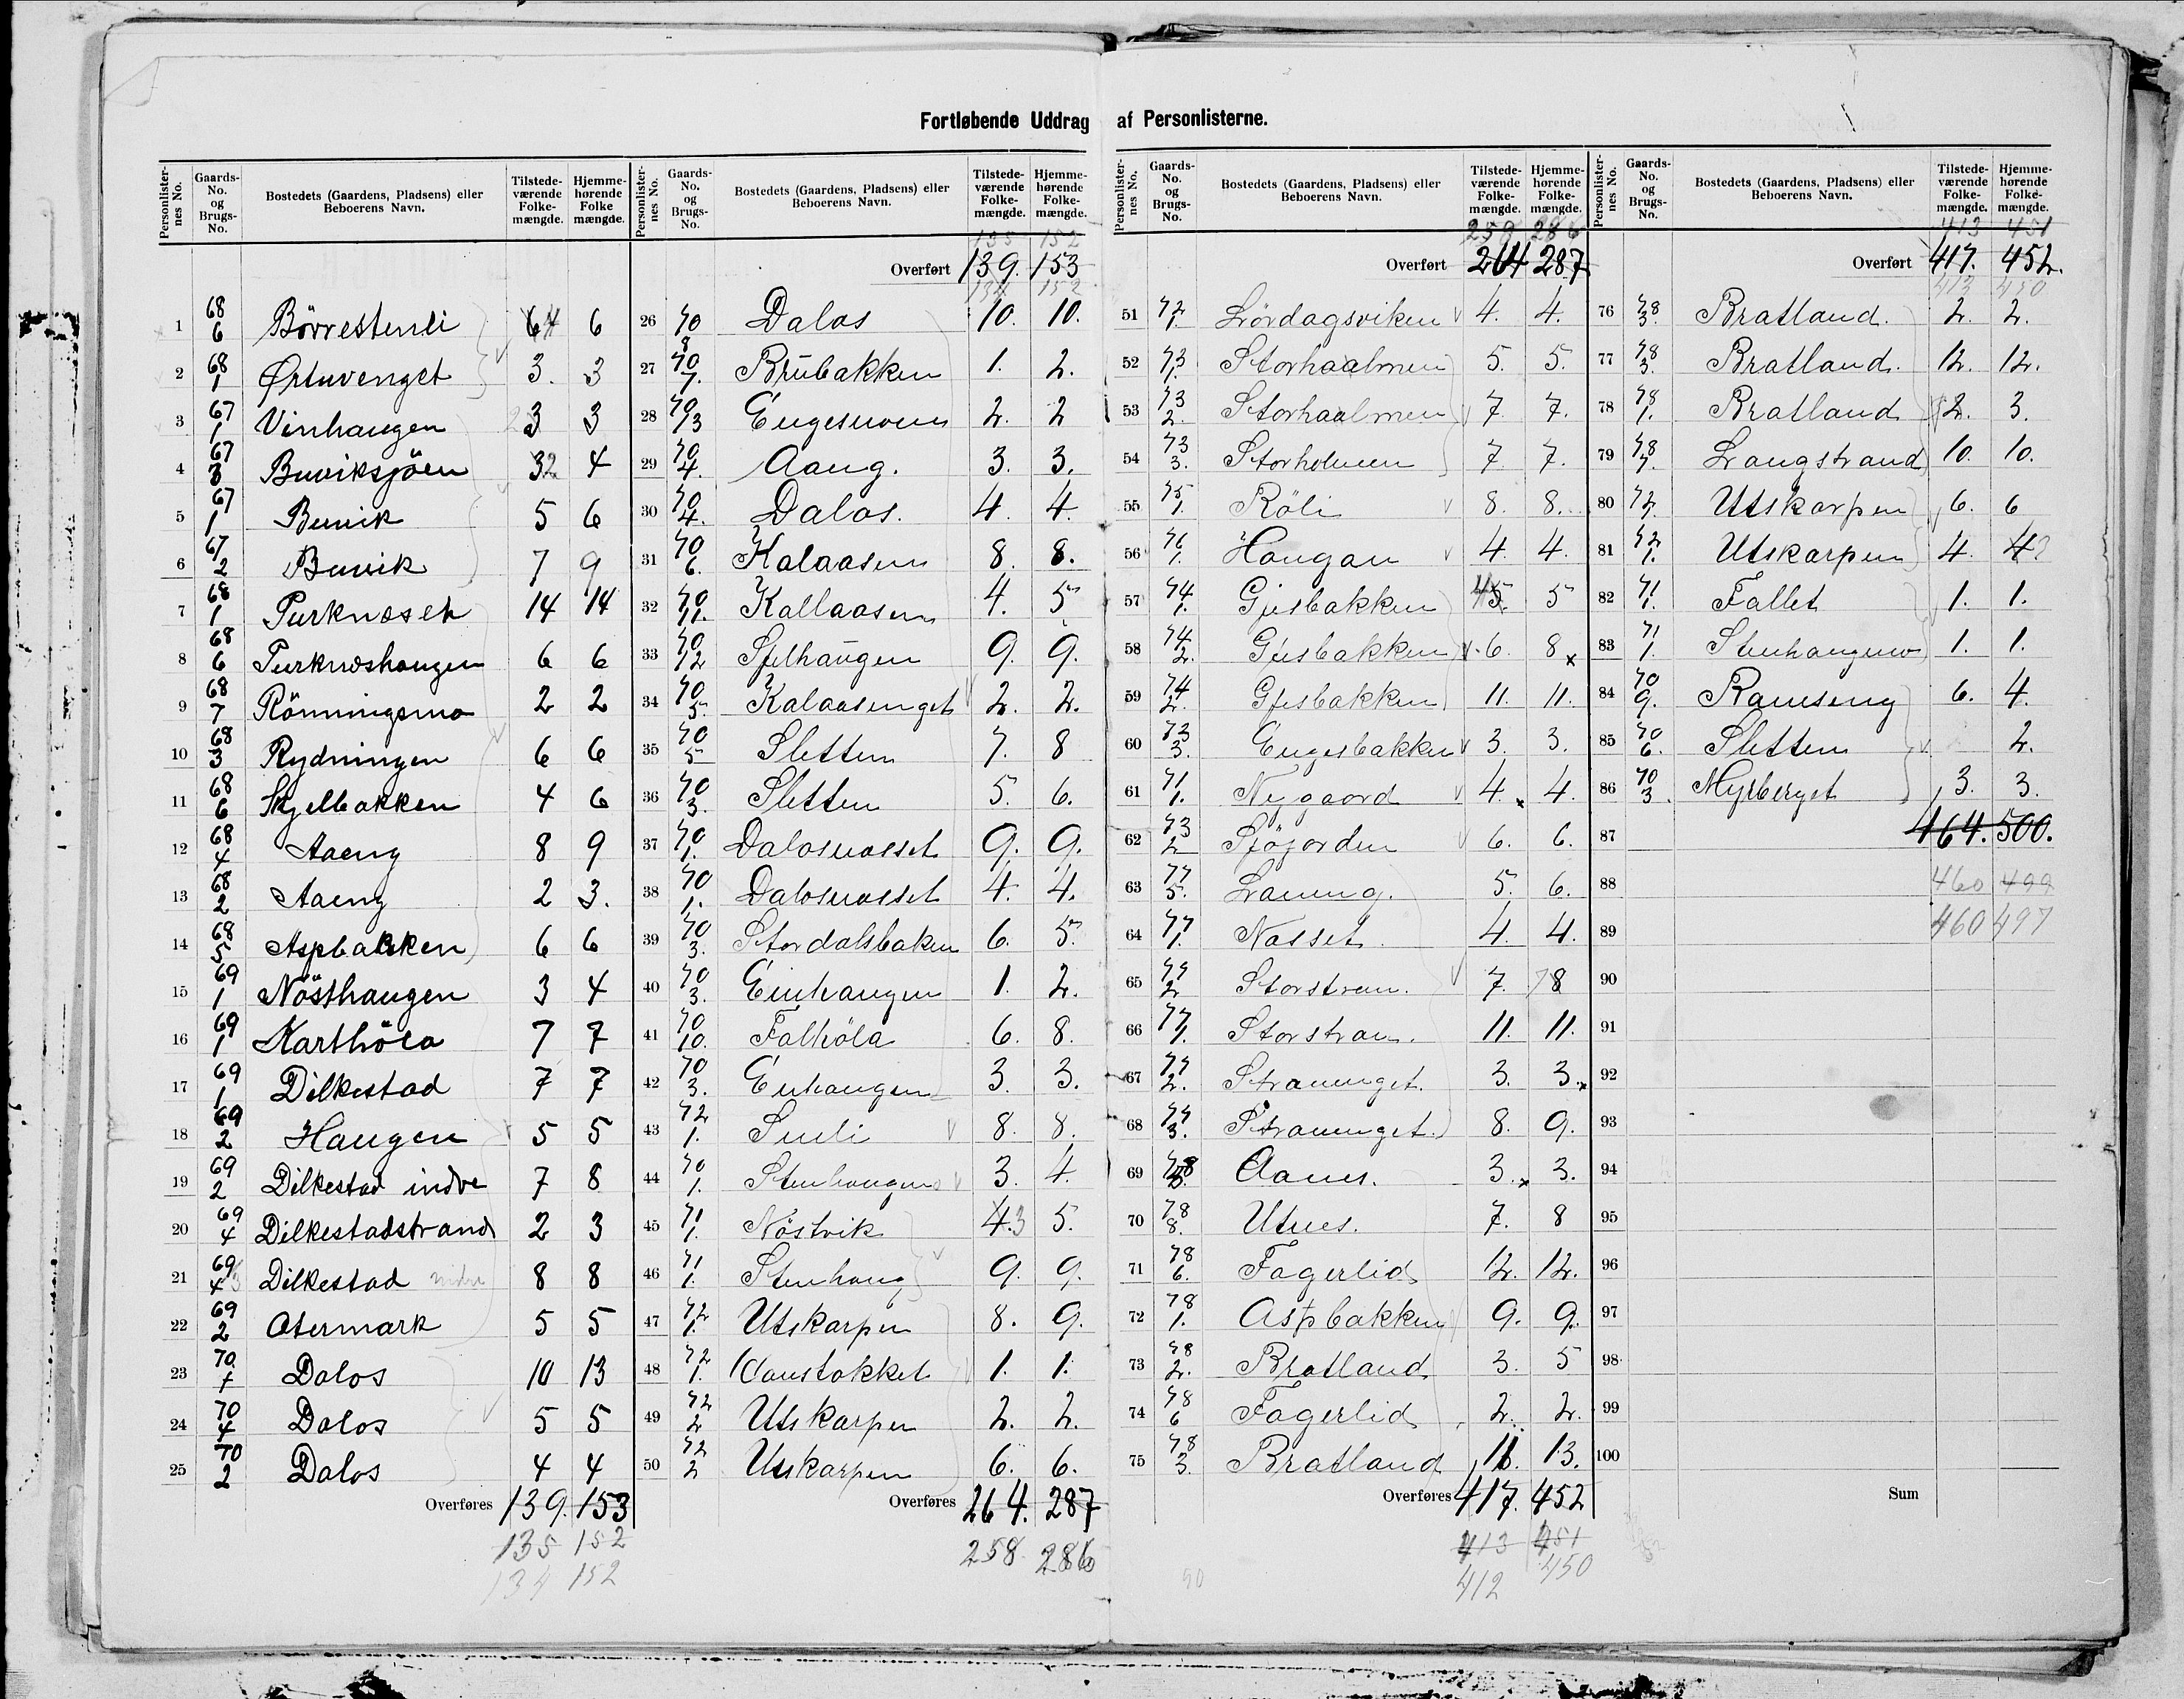 Fortløbende Uddrag af Personlisterne.
Personlister-nes No. Gaards-No. og Brugs-No. Bostedets (Gaardens, Pladsens) eller Beboerens Navn. Tilstede-værende Folke-mængde. Hjemme-hørende Folke mængde.
1 68/6 Börrestenli 64 6
2 68/1 Ørtuvenget 3. 3
3 67/1 Vinhaugen 3 3
4 67/3 Buviksjöen 32 4
5 67/1 Buvik 5 6
6 67/2 Buvik 7 9
7 68/1 Purknæset 14 14
8 68/6 Purknæshaugen 6 6
9 68/7 Rönningsmo 2 2
10 68/3 Rydningen 6 6
11 68/6 Skjelbakken 4 6
12 68/4 Aaeng 8 9
13 68/2 Aaeng 2 3.
14 68/5 Aspbakken 6 6
15 69/1 Nösthaugen 3 4
16 69/1 Karthöla 7 7
17 69/1 Dilkestad 7 7
18 69/2 Haugen 5 5
19 69/2 Dilkestad indre 7 8
20 69/4 Dilkestadstrand 2 3
21 69/4 Dilkestad indre 8 8
22 69/2 Otermark 5 5
23 70/1 Dalos 10 13
24 70/4 Dalos 5 5
25 70/2 Dalos 4 4
Overføres 139. 153
135 152
134 152
Personlister-nes No. Gaards-No. og Brugs-No. Bostedets (Gaardens, Pladsens) eller Beboerens Navn. Tilstede-værende Folke-mængde. Hjemme-hørende Folke-mængde.
135 152
Overført 139. 153
134 152
26 70/8 Dalos 10. 10.
27 70/7. Brubakken 1. 2.
28 70/13 Engesmoen 2. 2
29 70/4. Aaeng. 3. 3.
30 70/4. Dalos. 4. 4.
31 70/6. Kalaasen 8. 8.
32 70/11. Kallaasen 4. 5
33 70/12 Sjelhaugen 9. 9.
34 70/5. Kalaasenget 2. 2.
35 70/5 Sletten 7. 8
36 70/3. Sletten 5. 6.
37 70/1. Dalosnæsset 9. 9.
38 70/1. Dalosnæsset 4. 4.
39 70/3. Stordalsbaken 6. 5.
40 70/3. Einhaugen 1. 2.
41 70/10. Falhöla 6. 8.
42 70/3. Enhaugen 3. 3.
43 72/1. Snili 8. 8.
44 70/1. Stenhaugmo 3. 4.
45 71/1. Nöstvik 4.3 5.
46 71/1. Stenhaug 9. 9.
47 72/1. Utskarpen 8. 9.
48 72/1. Vanstokket 1. 1.
49 72/2 Utskarpen 2. 2.
50 72/2 Utskarpen 6. 6.
Overføres 264. 287
258 286
Personlister-nes No. Gaards-No. og Brugs-No. Bostedets (Gaardens, Pladsens) eller Beboerens Navn. Tilstede-værende Folke-mængde. Hjemme-hørende Folke-mængde.
258 286
Overført 264 287
51 72/1. Lördagsviken 4. 4.
52 73/1. Storhaalmen 5. 5.
53 73/2. Storhaalmen 7. 7.
54 73/3. Storholmen 7. 7.
55 75/1. Röli 8. 8.
56 76/1. Haugan 4. 4.
57 74/1. Gjesbakken 45. 5
58 74/2. Gjesbakken 6. 8
59 74/2. Gjesbakken 11. 11.
60 73/3. Engesbakken 3. 3.
61 71/1. Nygaard 4. 4.
62 73/2 Sjöjorden 6. 6.
63 77/5. Laeng. 5. 6.
64 77/1. Næsset 4. 4.
65 77/2 Storstran. 7. 8
66 77/1. Storstran. 11. 11.
67 77/2. Straenget. 3. 3.
68 77/3. Straumget. 8. 9.
69 78 Aanes. 3. 3.
70 78/8. Utnes. 7. 8
71 78/6. Fagerlid 12. 12.
72 78/1. Aspbakken 9. 9.
73 78/2. Bratland 3. 5
74 78/6 Fagerlid 2. 2.
75 78/3. Bratland 11. 13.
Overføres 417. 452
413 451
412 450
Personlister-nes No. Gaards-No. og Brugs-No. Bostedets (Gaardens, Pladsens) eller Beboerens Navn. Tilstede-værende Folke-mængde. Hjemme-hørende Folke-mængde.
413 451
Overført 417. 452.
412 450
76 78/3. Bratland. 2. 2.
77 78/3. Bratland. 12. 12.
78 78/1. Bratland 2. 3.
79 78/7. Langstrand 10. 10.
80 72/1. Utskarpen 6. 6
81 72/1. Utskarpen 4. 4
82 71/1. Fallet 1. 1.
83 71/1. Stenhaugmo 1. 1.
84 70/9. Rameseng 6. 4.
85 70/6. Sletten 2.
86 70/3. Myrberget 3. 3.
87 464. 500.
88 460 499
89 460 497
90
91
92
93
94
95
96
97
98
99
100
Sum